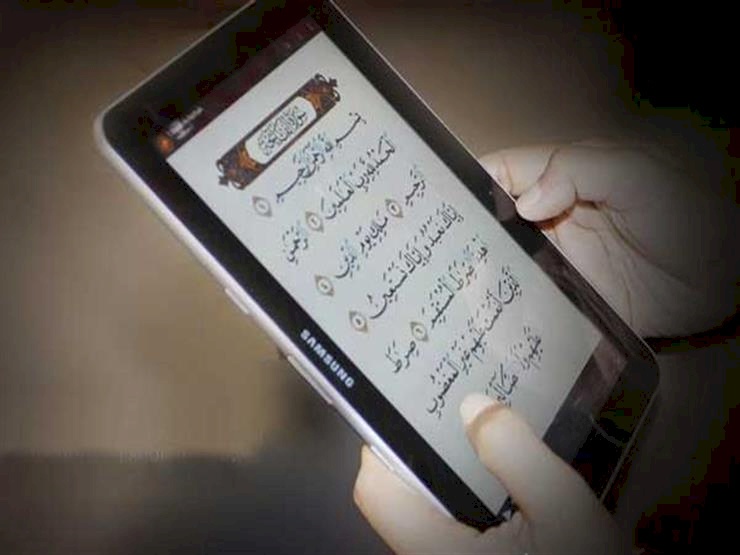 سورة الفاتحة
بِسْمِ اللَّهِ الرَّحْمَٰنِ الرَّحِيمِ ١
الْحَمْدُ لِلَّهِ رَبِّ الْعَالَمِينَ ٢ الرَّحْمَٰنِ
الرَّحِيمِ ٣ مَالِكِ يَوْمِ الدِّينِ ٤
إِيَّاكَ نَعْبُدُ وَإِيَّاكَ نَسْتَعِينُ ٥
اهْدِنَا الصِّرَاطَ الْمُسْتَقِيمَ ٦ صِرَاطَ
الَّذِينَ أَنْعَمْتَ عَلَيْهِمْ غَيْرِ الْمَغْضُوبِ
عَلَيْهِمْ وَلَا الضَّالِّينَ
SAMSUNG